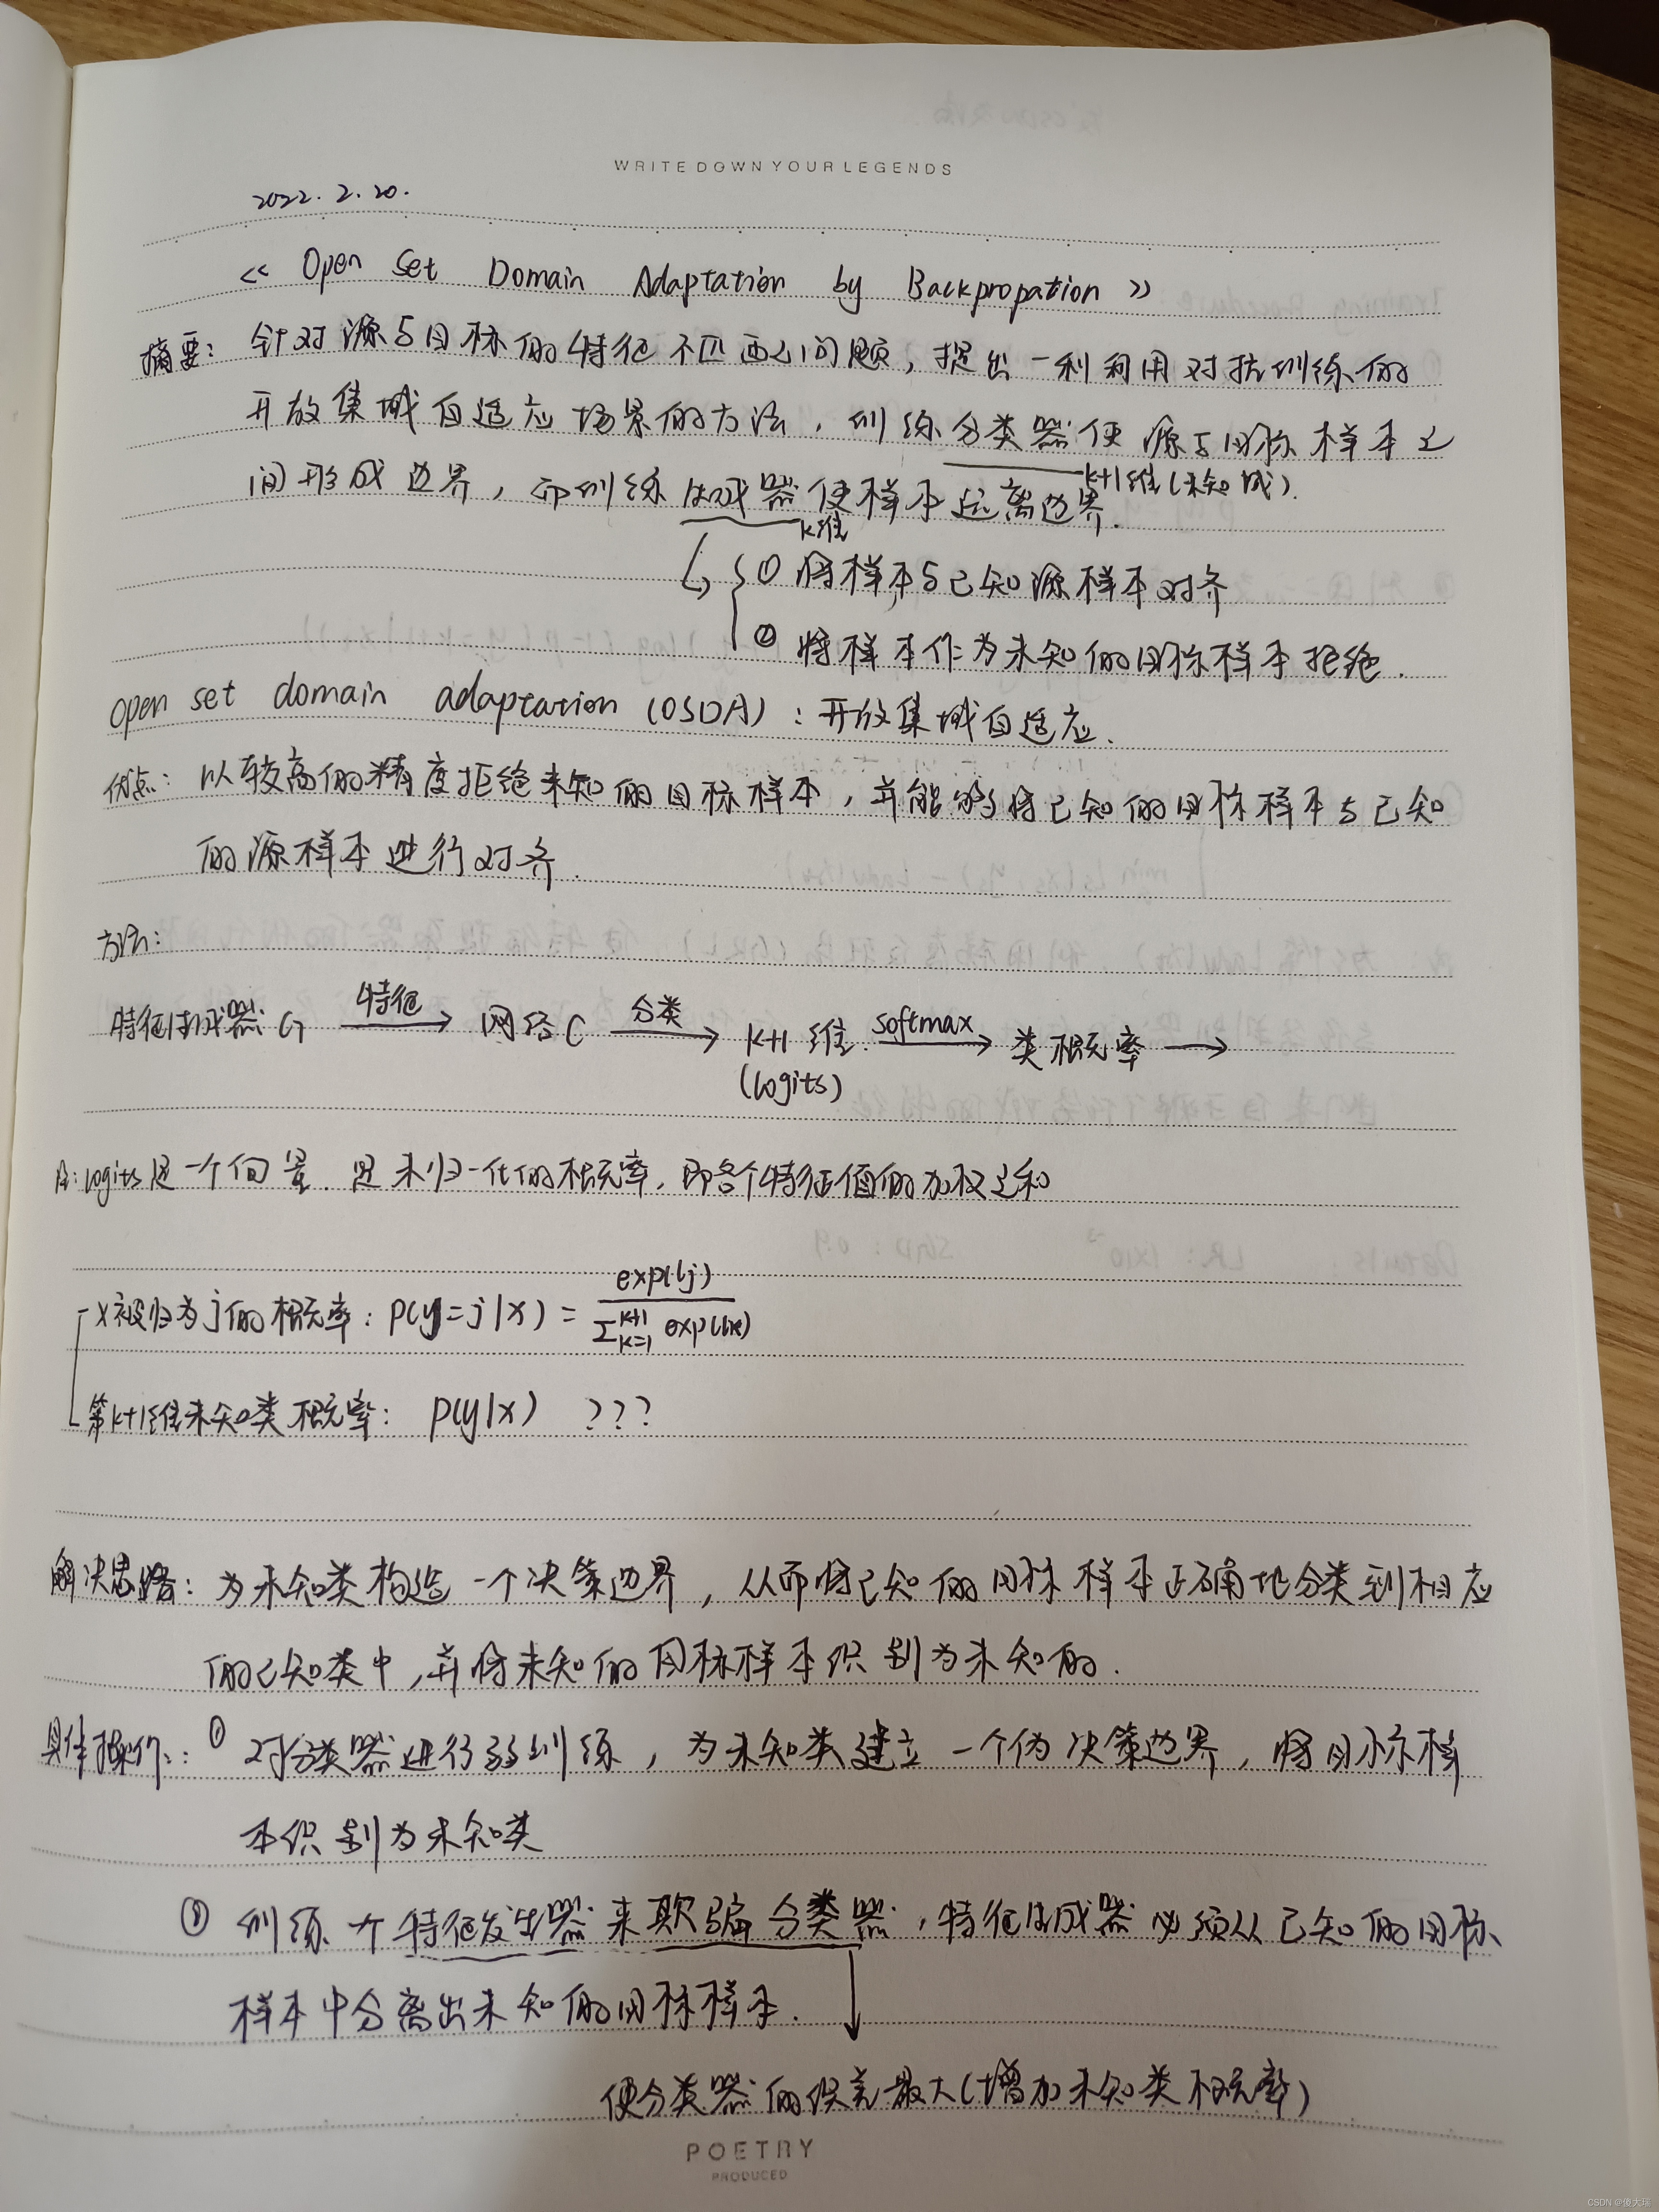 WRITE DOWN YOUR LEGENDS
2022.2.20.
<< Open Set Domain Adaptation by Backpropation >>
摘要: 针对源与目标的特征不匹配问题, 提出一种利用对抗训练的
开放集域自适应场景的方法, 训练分类器使源与目标样本之
间形成边界, 而训练生成器使样本远离边界.
k+1维(未知域).
k维
① 将样本与已知源样本对齐
② 将样本作为未知的目标样本拒绝.
open set domain adaptation (OSDA): 开放集域自适应.
优点: 以较高的精度拒绝未知的目标样本, 并能够将已知的目标样本与已知
的源样本进行对齐.
方法:
特征生成器G 特征→ 网络C 分类→ k+1维 softmax→ 类概率 →
(logits)
注: logits是一个向量. 是未归一化的概率, 即各个特征值的加权之和
x被归为j的概率: p(y=j|x) = exp(lj) / Σ_{k=1}^{k+1} exp(lk)
第k+1维未知类概率: p(y|x) ???
解决思路: 为未知类构造一个决策边界, 从而将已知的目标样本正确地分类到相应
的已知类中, 并将未知的目标样本识别为未知的.
具体操作: ① 对分类器进行弱训练, 为未知类建立一个伪决策边界, 将目标样
本识别为未知类
② 训练一个特征发生器来欺骗分类器, 特征生成器必须从已知的目标
样本中分离出未知的目标样本.
使分类器的误差最大(增加未知类概率)
POETRY
PRODUCED
CSDN @傻大瑞